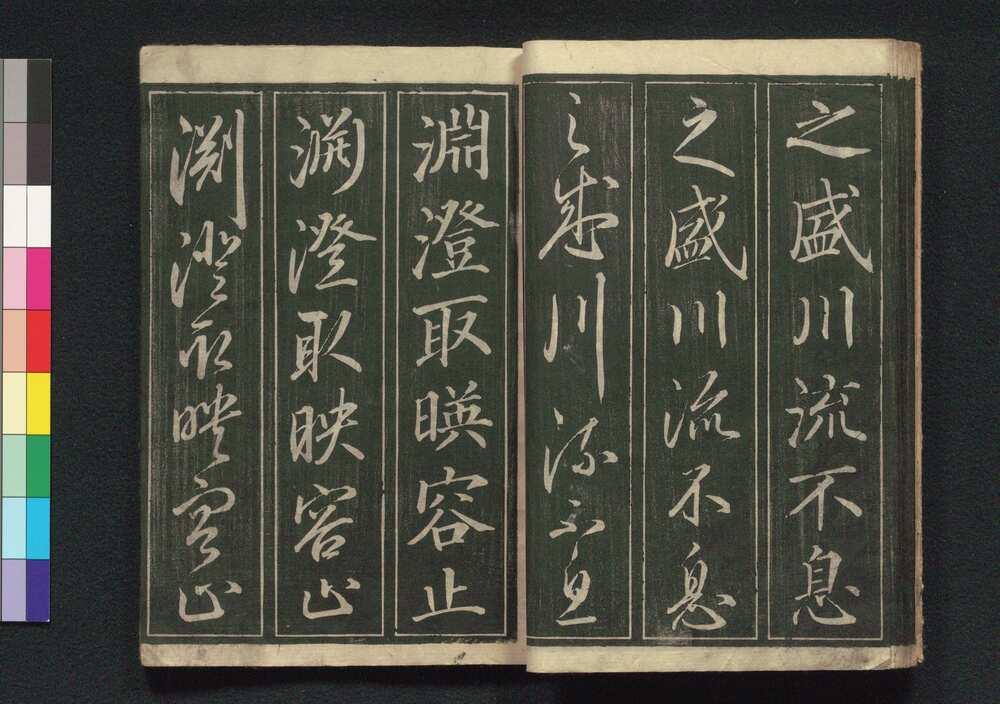 之盛川流不息
之盛川流不息
之盛川流不息
淵澄取暎容止
渊澄取映容止
渊澄取映容止